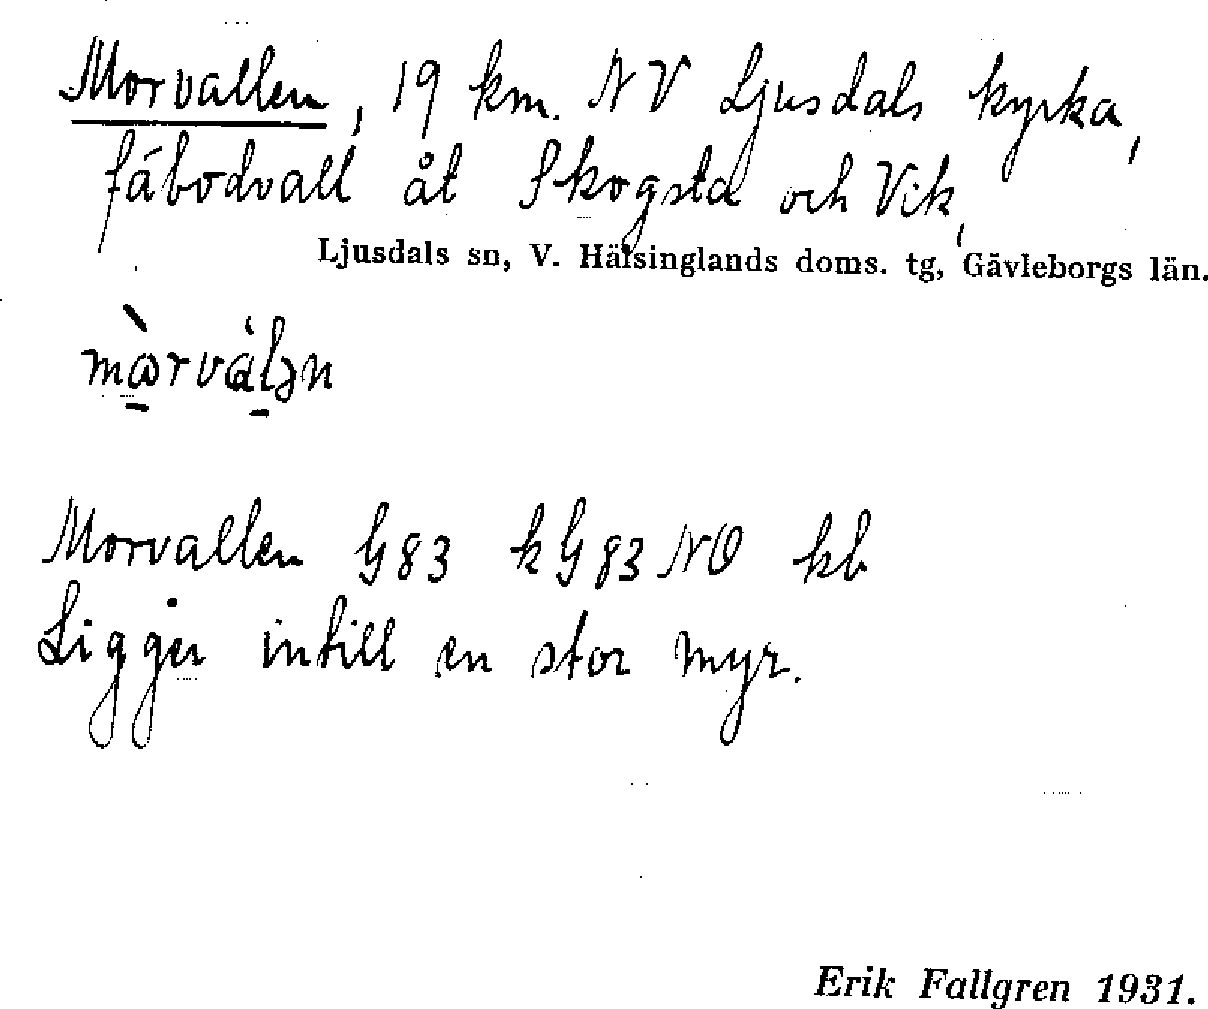 Morvallen, 19 km. NV Ljusdals kyrka,
fäbodvall åt Skogsta och Vik,
Ljusdals sn, V. Hälsinglands doms. tg, Gävleborgs län.
Morvallen G83 kG83 NO kb
Ligger intill en stor myr.
Erik Fallgren 1931.